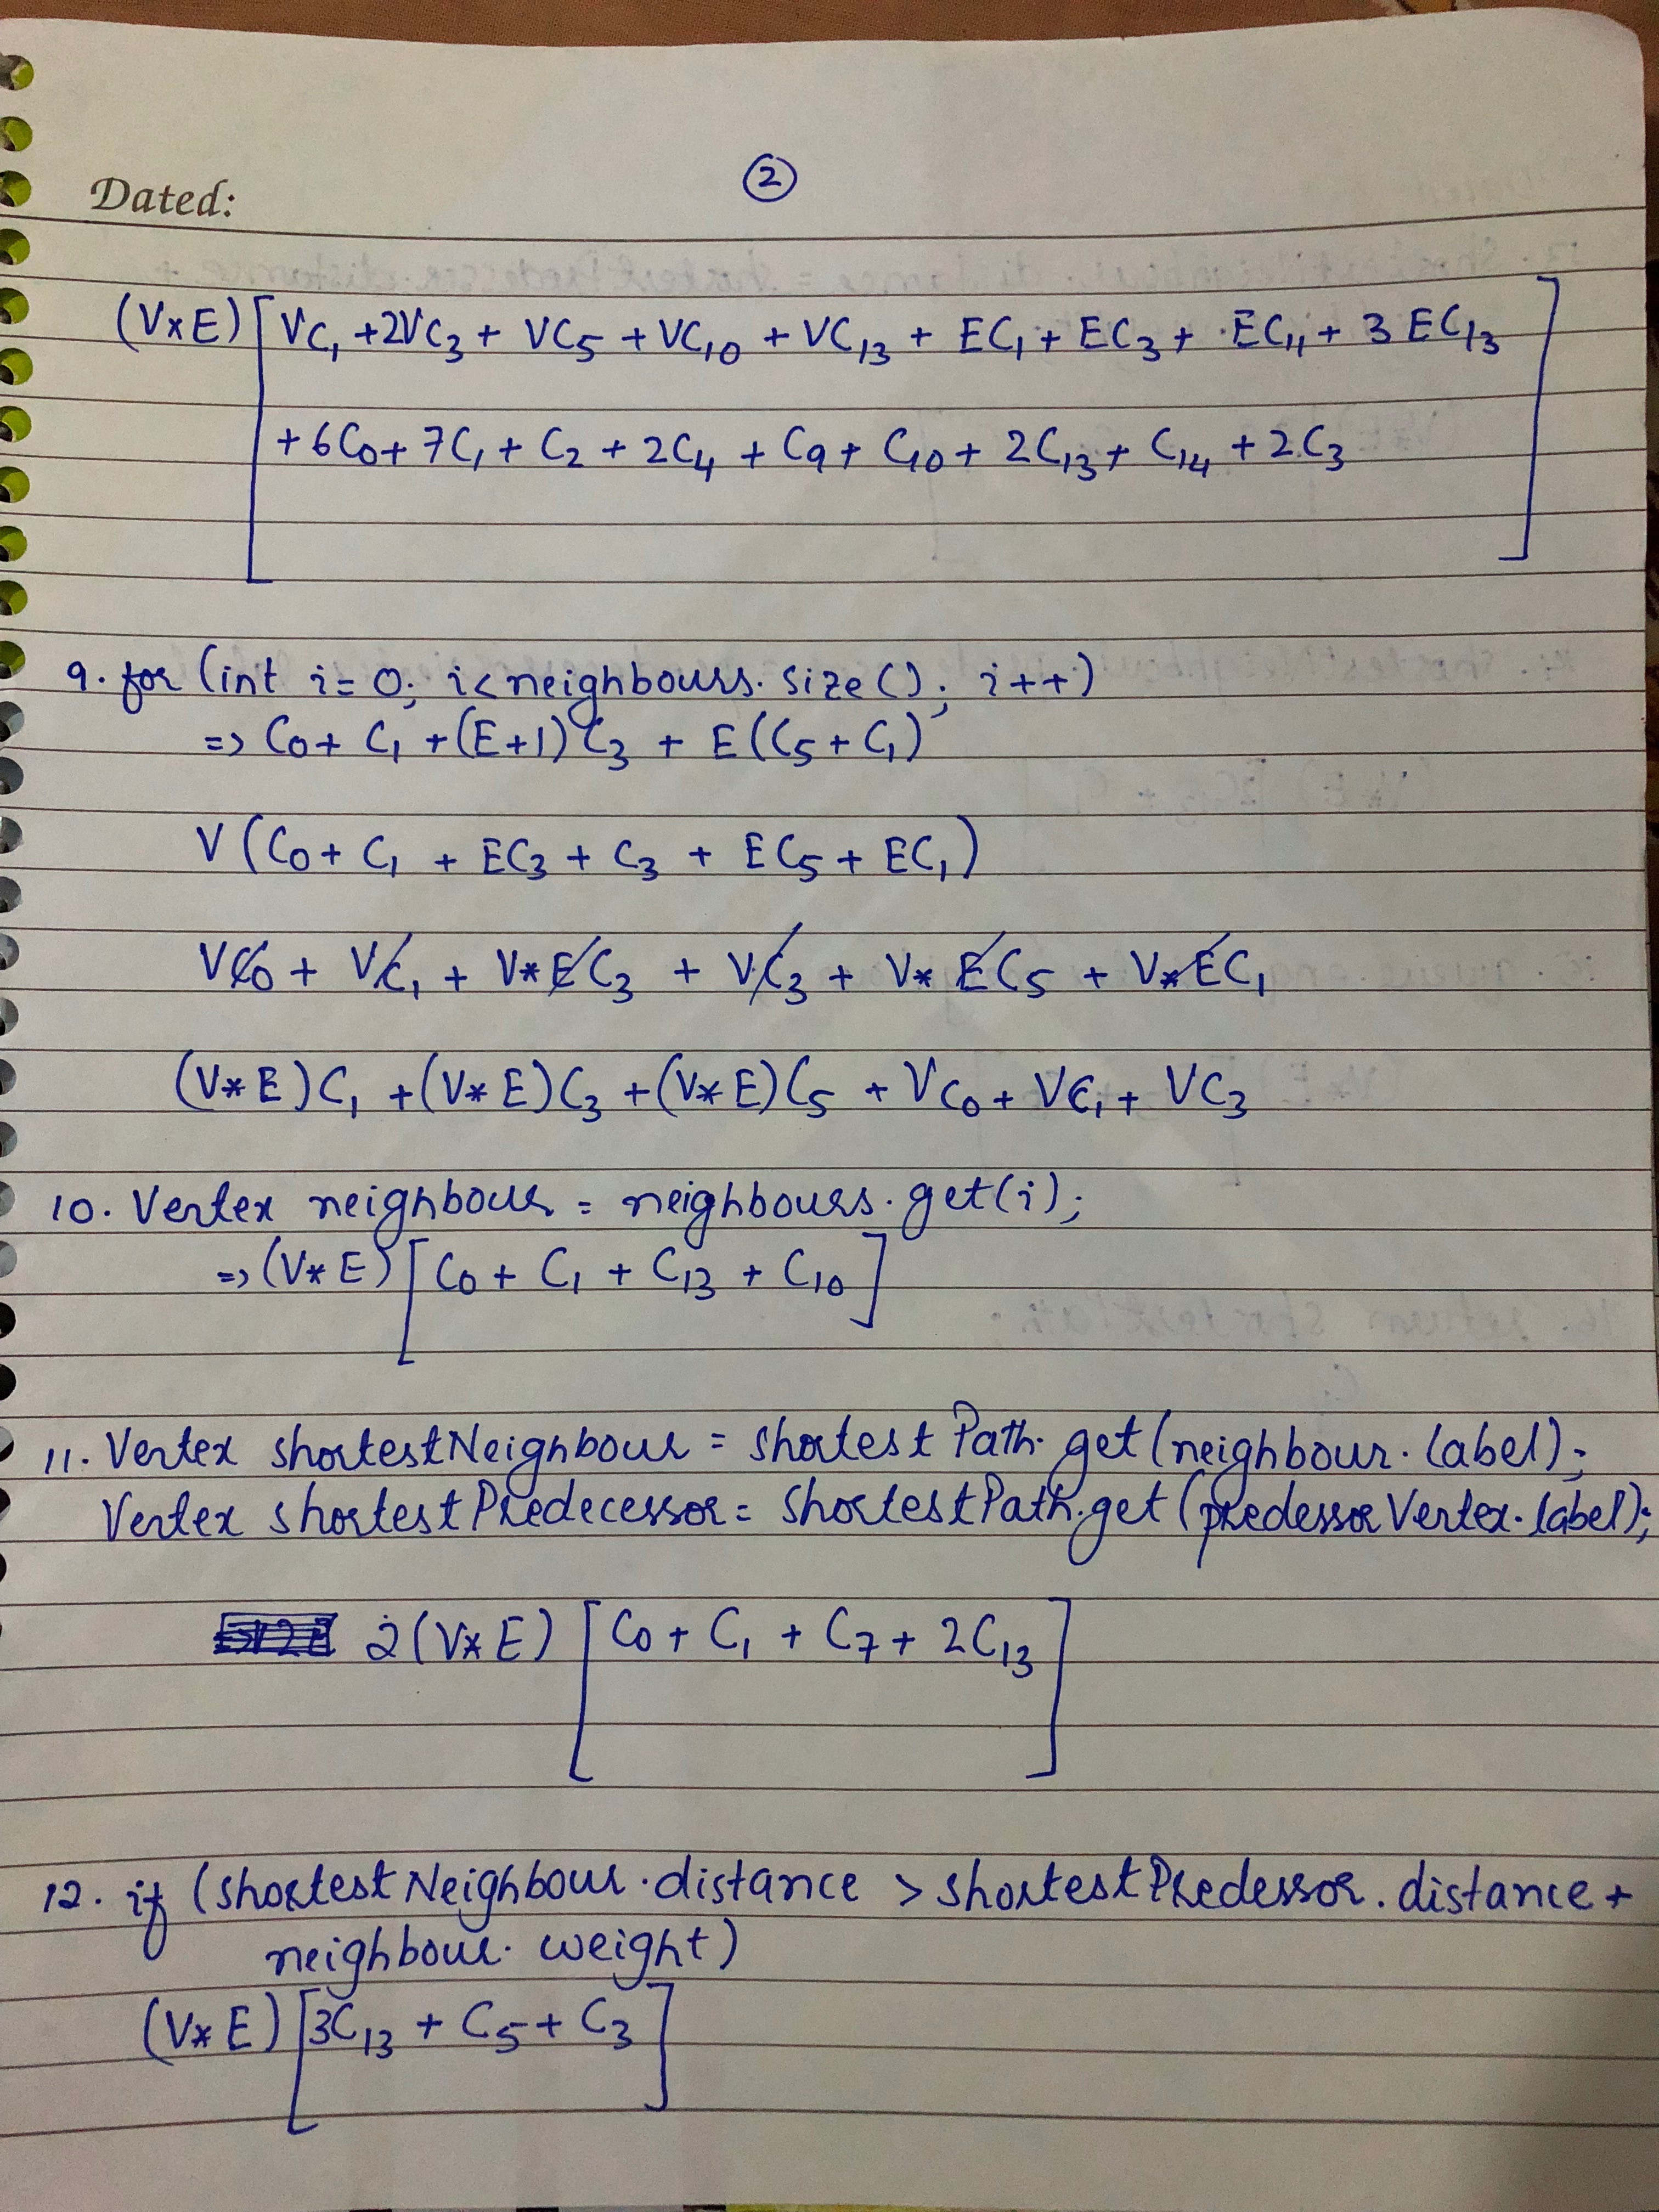 2
Dated:
(V*E) [ VC1 + 2VC3 + VC5 + VC10 + VC13 + EC1 + EC3 + EC11 + 3EC13
+ 6C0 + 7C1 + C2 + 2C4 + C9 + C10 + 2C13 + C14 + 2C3 ]
9. for (int i = 0; i < neighbours. size(); i++)
=> C0 + C1 + (E+1) C3 + E(C5 + C1)
V (C0 + C1 + EC3 + C3 + EC5 + EC1)
VC0 + VC1 + V*EC3 + VC3 + V*EC5 + V*EC1
(V*E)C1 + (V*E)C3 + (V*E)C5 + VC0 + VC1 + VC3
10. Vertex neighbour = neighbours.get(i);
=> (V*E) [C0 + C1 + C13 + C10]
11. Vertex shortestNeighbour = shortestPath.get(neighbour.label);
Vertex shortestPredecessor = shortestPath.get(predessorVertex.label);
2(V*E) [C0 + C1 + C7 + 2C13]
12. if (shortestNeighbour.distance > shortestPredessor.distance +
neighbour. weight)
(V*E) [3C13 + C5 + C3]